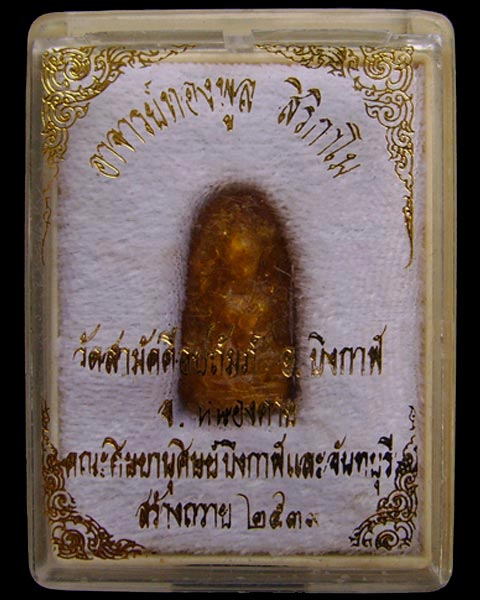 อาจารย์ทองพูล สิริกาโม
วัดสามัคคีอุปถัมภ์ อ. บึงกาฬ
จ. หนองคาย
คณะศิษยานุศิษย์บึงกาฬและจันทบุรี
สร้างถวาย ๒๕๓๙